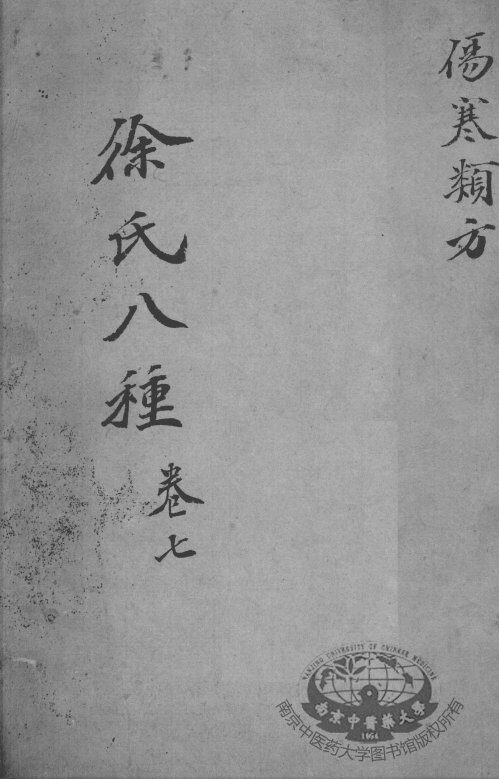 傷寒類方
徐氏八種
卷七
NANJING UNIVERSITY OF CHINESE MEDICINE
南京中醫藥大學
1954
南京中医药大学图书馆版权所有